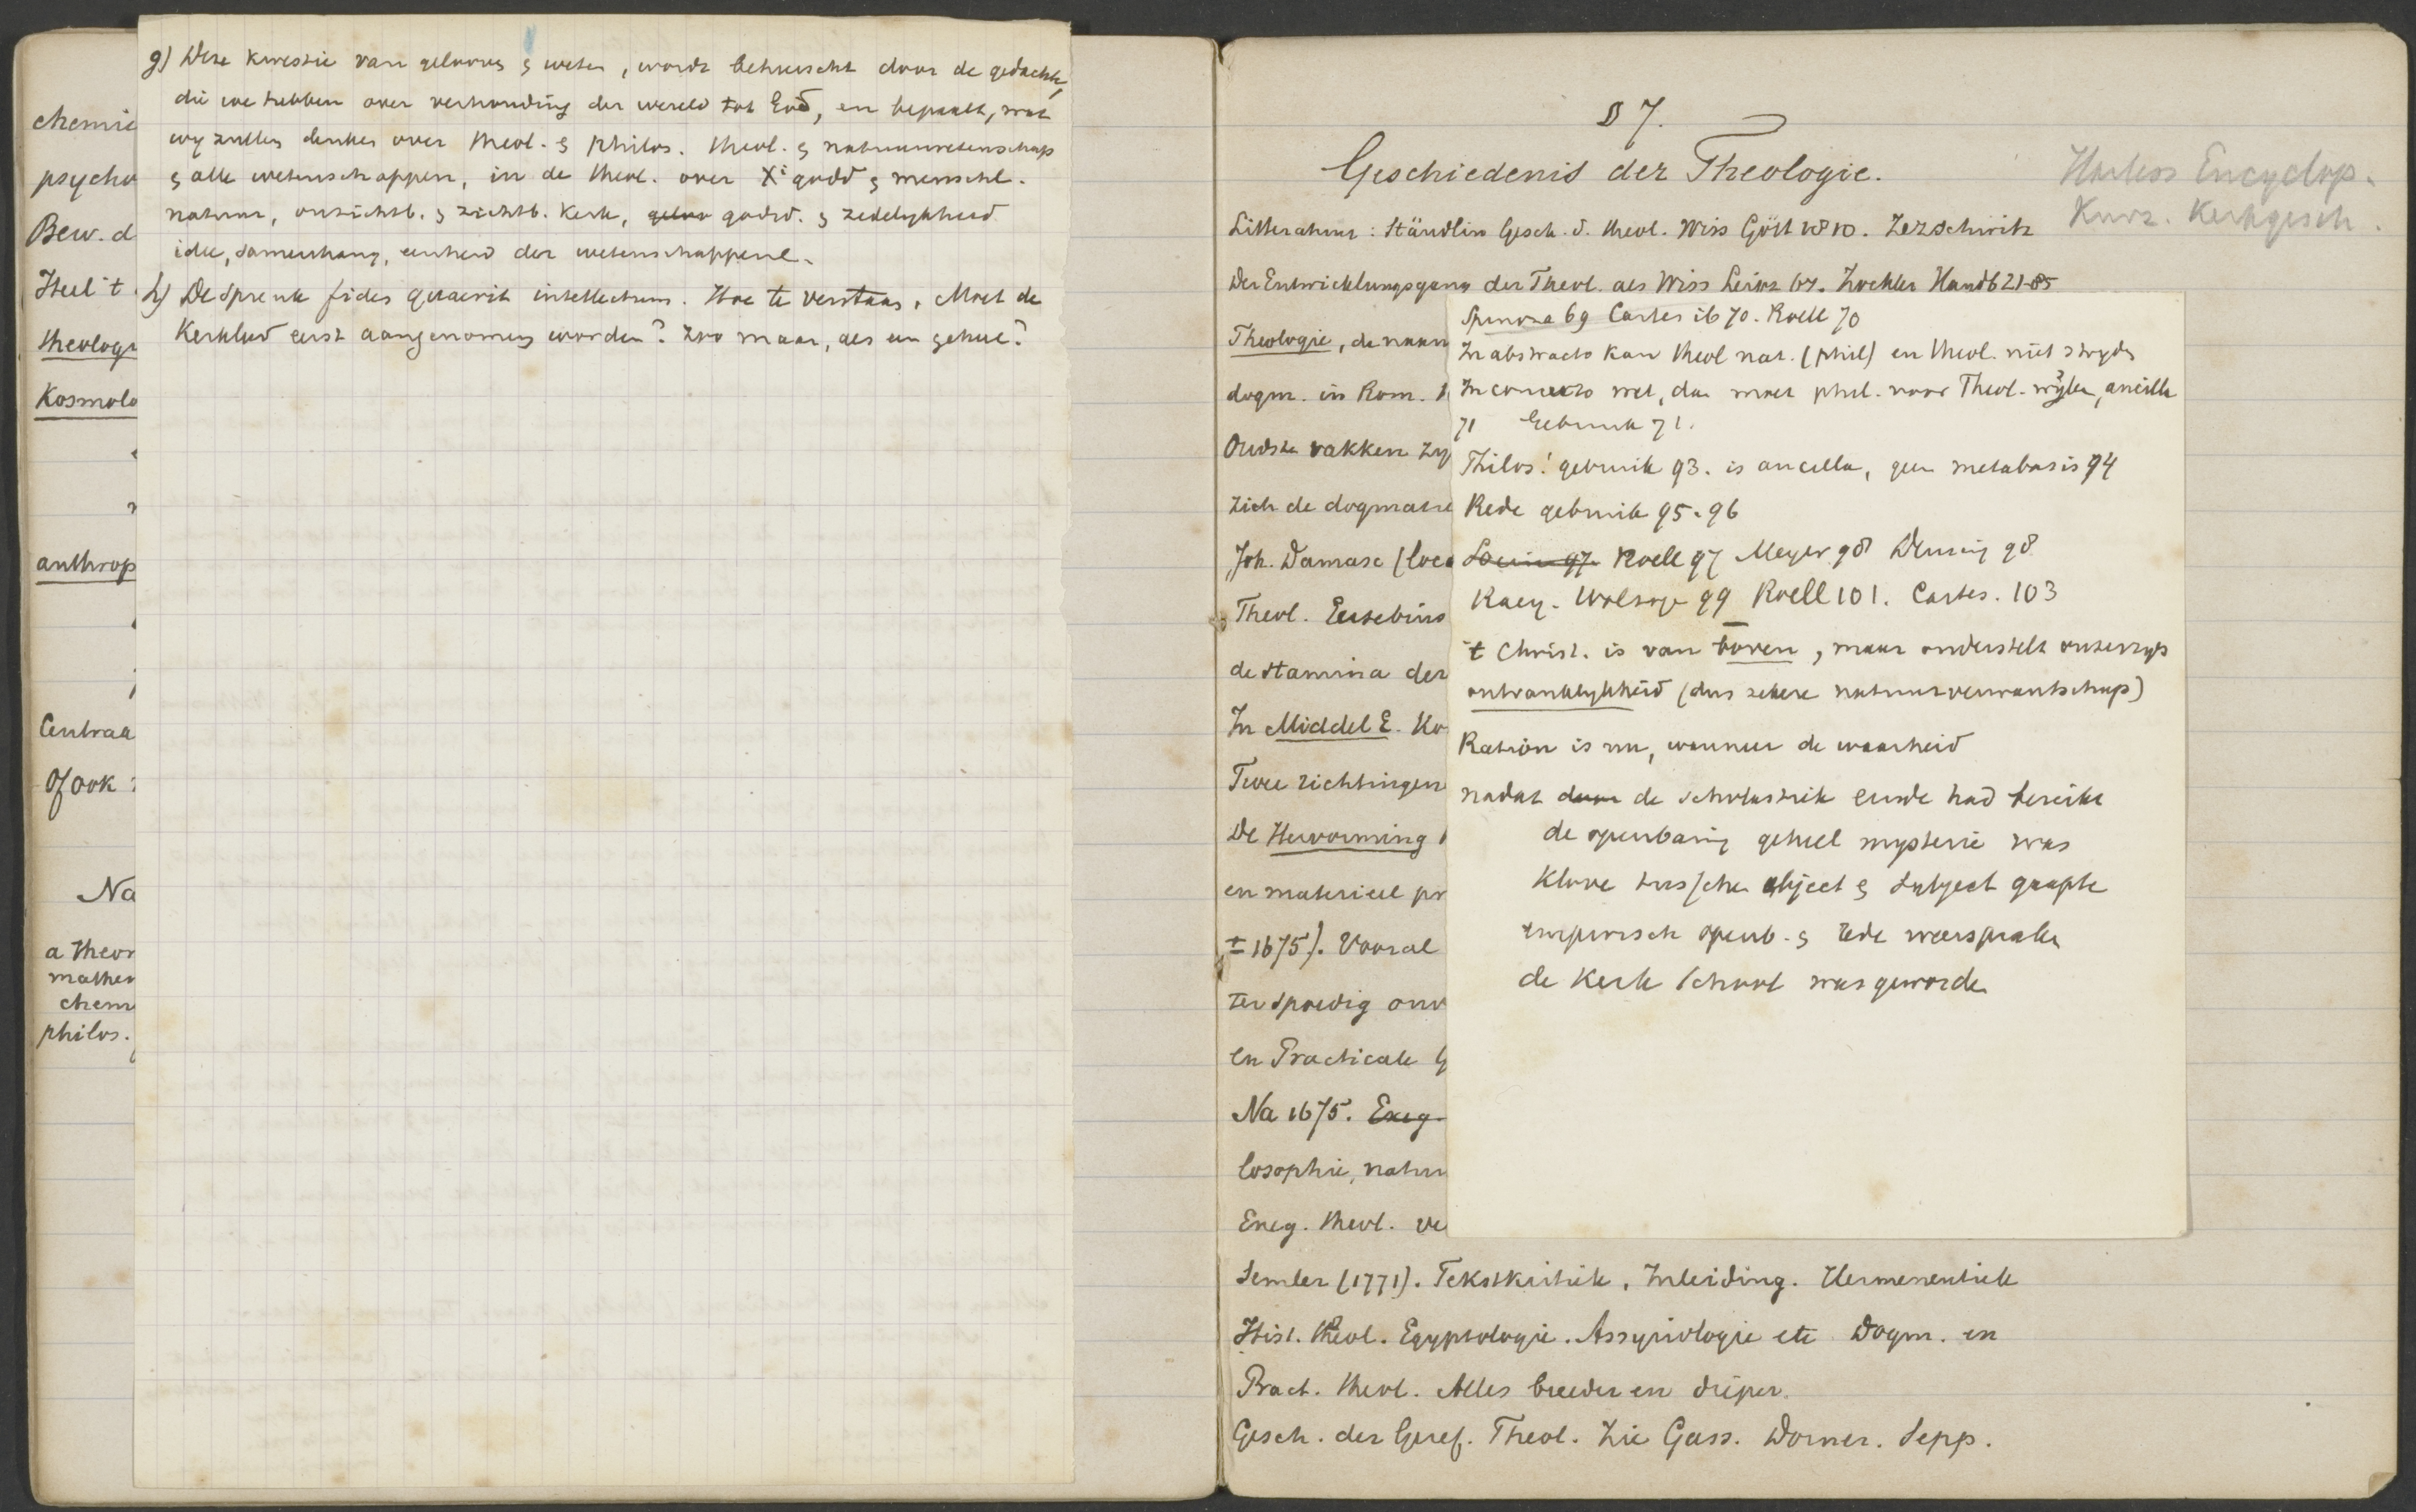 chemie
psycho
Bew. d
Heel 't
theologi
Kosmolo
anthrop
Centraa
Of ook
Na
a theor
mathem
chem
philos.
g) Deze kwestie van gelooven & weten, wordt beheerscht door de gedachte,
die we hebben over verhouding der wereld tot God, en bepaalt, wat
wij zullen denken over theol. & philos. theol. & natuurwetenschap
& alle wetenschappen, in de theol. over X' godd & menschl.
natuur, onzichtb. & zichtb. Kerk, godsd. & zedelijkheid
idee, samenhang, eenheid der wetenschappen.
h) De spreuk fides quaerit intellectum. Hoe te verstaan. Moet de
Kerkleer eerst aangenomen worden? Zoo maar, als een geheel?
§ 7.
Geschiedenis der Theologie.
Harless Encyclop.
Kurz. Kerkgesch.
Litteratuur: Stäudlin Gesch. d. theol. Wiss Gött 1810. Zezschwitz
Der Entwicklungsgang der Theol. als Wiss Leipz 67. Zockler Handb 21-85
Theologie, de naam
dogm. in Rom.
Oudste vakken zij
zich de dogmatie
Joh. Damasc (loca
Theol. Eusebius
de stamina der
In Middel E. Ko
Twee richtingen
De Hervorming
en materieel pr
± 1675). Vooral
ter spoedig onv
en Practicale G
Na 1675. Exeg.
losophie, natuu
Exeg. theol. ve
Semler (1771). Tekstkritiek, Inleiding. Hermeneutiek
Hist. theol. Egyptologie. Assyriologie etc Dogm. en
Pract. theol. Alles breeder en dieper.
Gesch. der Geref. Theol. Zie Gass. Dorner. Sepp.
Spinoza 69 Cartes ib 70. Roell 70
In abstracto kan theol nat. (phil) en theol. niet strijden
In concreto wel, dan moet phil. voor Theol. wijken, ancilla
71 Gebruik 71.
Philos! gebruik 93. is ancilla, geen metabasis 94
Rede gebruik 95. 96
Roell 97 Meyer 98 Deusing 98
Wolzoge 99 Roell 101. Cartes. 103
't Christ. is van boven, maar onderstelt onzerzijds
ontvankelijkheid (dus zekere natuurverwantschap)
Ration is nu, wanneer de waarheid
nadat door de scholastiek einde had bereikt
de openbaring geheel mysterie was
Klove tusschen object & subject gaapte
empirisch openb. & rede weerspraken
de Kerk school was geworden